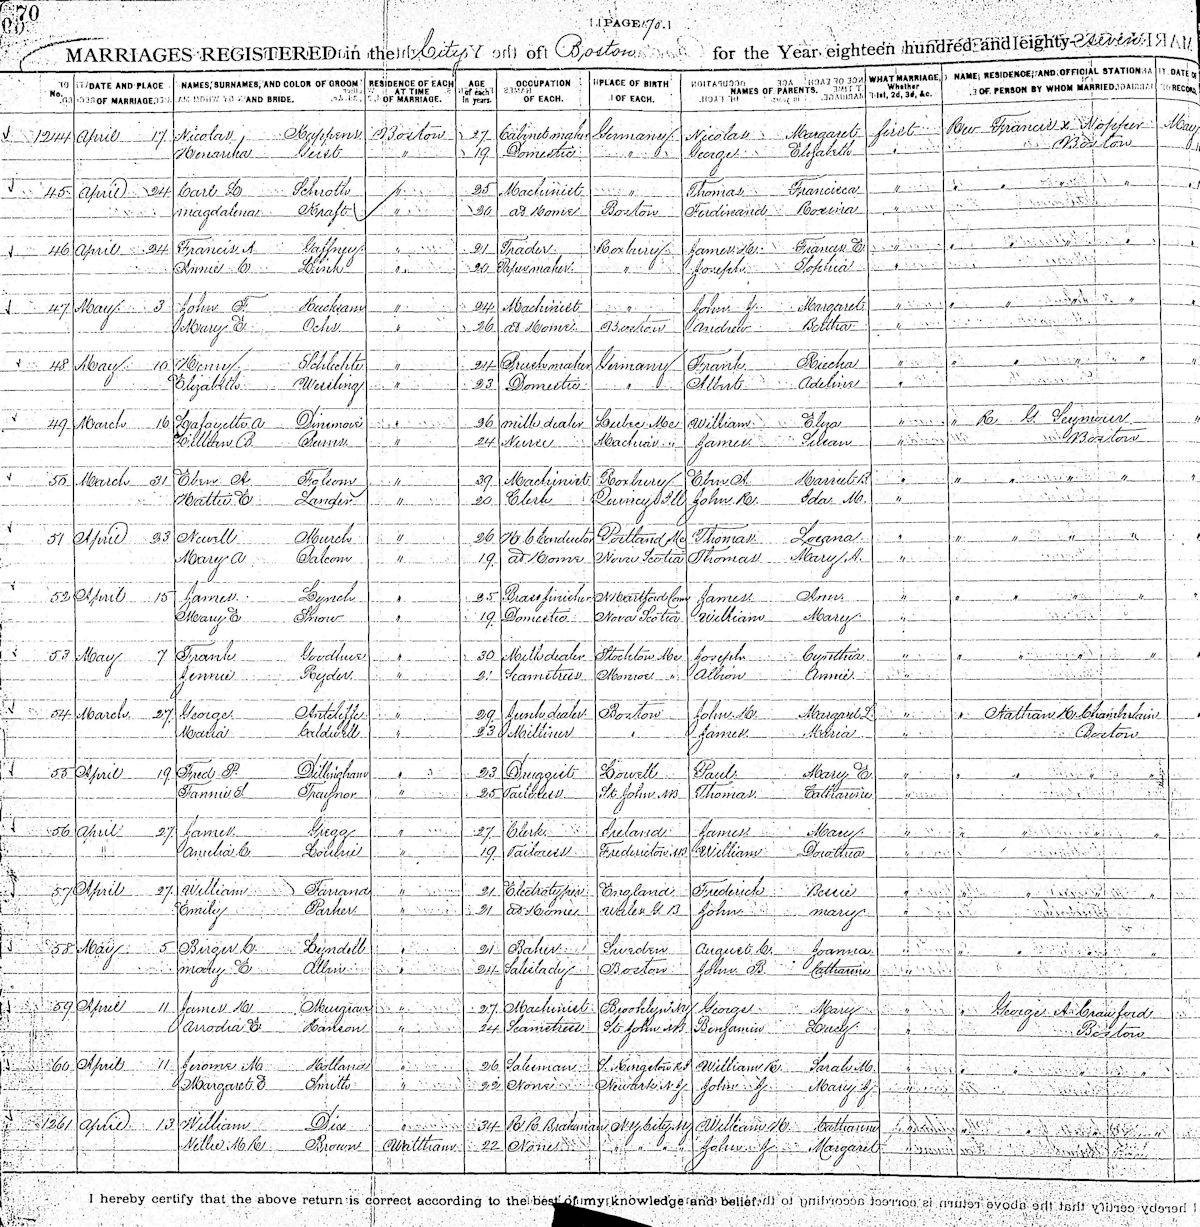 70
PAGE 70.
MARRIAGES REGISTERED in the City of Boston for the Year eighteen hundred and eighty-seven
No. DATE AND PLACE OF MARRIAGE. NAMES, SURNAMES, AND COLOR OF GROOM AND BRIDE. RESIDENCE OF EACH AT TIME OF MARRIAGE. AGE of each in years. OCCUPATION OF EACH. PLACE OF BIRTH OF EACH. NAMES OF PARENTS. WHAT MARRIAGE, Whether 1st, 2d, 3d, &c. NAME, RESIDENCE, AND OFFICIAL STATION OF PERSON BY WHOM MARRIED. DATE OF RECORD.
1244 April 17 Nicolas Boston 27 Cabinetmaker Germany Nicolas Margaret first Rev Francis X May
Geist " 19 Domestic " George Elizabeth " Boston
45 April 24 Carl Schroth " 25 Machinist " Thomas Francisca " " " " "
Magdalena Kraft " 20 at Home Boston Ferdinand Rosina "
46 April 24 Francis A Gaffney " 21 Trader Roxbury James H. Frances E " " " " "
Annie C Link " 20 Papermaker " Joseph Sophia "
47 May 3 John F. " 24 Machinist " John J Margaret " " " " "
Mary E Ochs " 26 at Home Boston Andrew "
48 May 10 Henry Schlichte " 24 Brushmaker Germany Frank " " " " "
Elizabeth Wessling " 23 Domestic " Albert Adeline "
49 March 16 Lafayette A Dinsmore " 26 milk dealer Lubec Me William Eliza " " R G Seymour "
Lillian B " 24 Nurse Machias " James "  Boston
50 March 31 Eben A Folsom " 39 Machinist Roxbury Eben A. Harriet B. " " " " "
Hattie E Lander " 20 Clerk Quincy Ill John H. Ida M. "
51 April 23 Newell Murch " 26 H C Conductor Portland Me Thomas " " " " "
Mary A Balcom " 19 at Home Nova Scotia Thomas Mary A. "
52 April 15 James Lynch " 25 Brass finisher N Hartford Conn James Ann " " " " "
Mary E Snow " 19 Domestic Nova Scotia William Mary "
53 May 7 Frank Goodhue " 30 Milk dealer Stockton Me Joseph Cynthia " " " " "
Jennie Ryder " 21 Seamstress Monroe " Albion Annie "
54 March 27 George Antcliffe " 29 Junk dealer Boston John H. Margaret L. " " Nathan H. Chamberlain "
Maria Caldwell " 23 Milliner " James Maria " Boston
55 April 19 Fred P. Dillingham " 23 Druggist Lowell Paul Mary E. " " " " "
Fannie S. Traynor " 25 Tailoress St John NB Thomas Catharine "
56 April 27 James Gregg " 27 Clerk Ireland James Mary " " " " "
" Amelia C " 19 Tailoress Fredericton NB William Dorothea "
57 April 27 William Farrand " 21 Electrotyper England Frederick Bessie " " " " "
Emily Parker " 21 at Home Wales G B John mary "
58 May 5 Birger C. Lyndell " 21 Baker Sweden August C. Joanna " " " " "
mary E Allen " 24 Saleslady Boston John B. Catharine "
59 April 11 James H Musgrave " 27 Machinist Brooklyn NY George Mary " " George A Crawford
Hanson " 24 Seamstress St John NB Benjamin Lucy " Boston
60 April 11 Jerome M Holland " 26 Salesman S. Kingston RI William H. Sarah M. " " " " "
Margaret E Smith " 22 None Newark N J John J Mary J. "
1261 April 13 William Dix " 34 R R Brakeman NY City NY William H Catharine " " " " "
Nellie M Brown Waltham 22 None " " " John J Margaret "
I hereby certify that the above return is correct according to the best of my knowledge and belief.